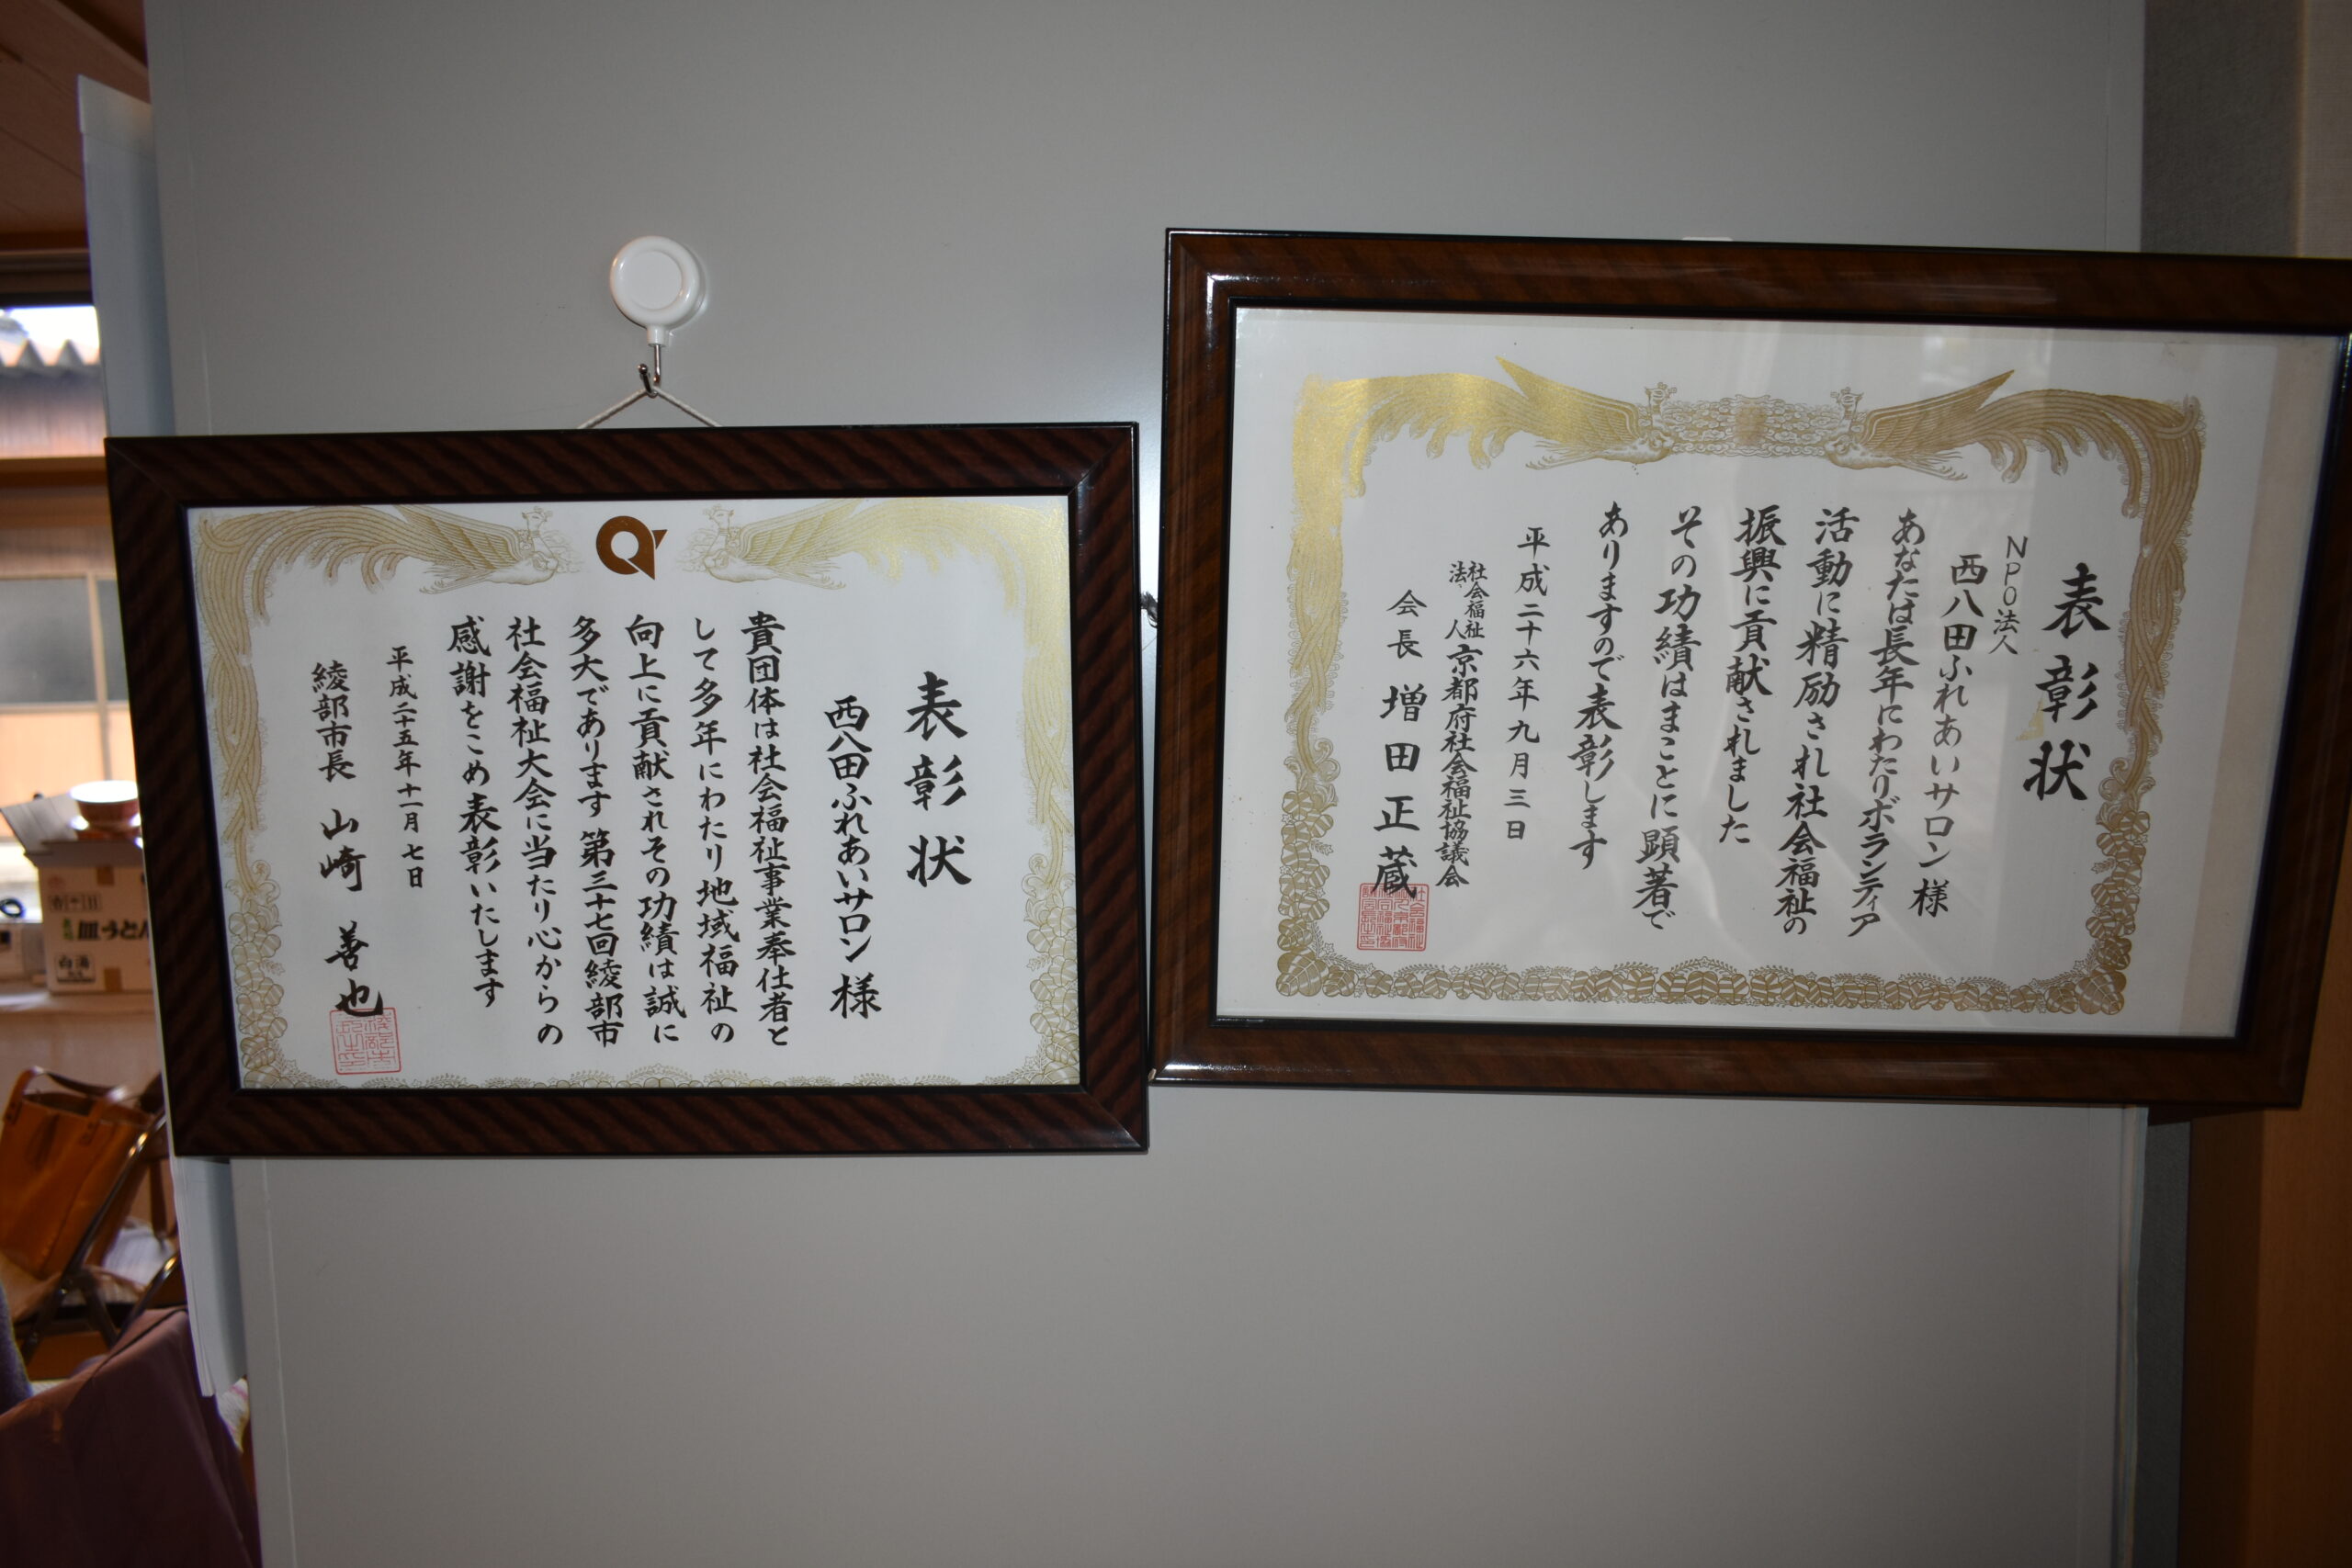 表彰状
NPO法人
西八田ふれあいサロン 様
あなたは長年にわたりボランティア
活動に精励され社会福祉の
振興に貢献されました
その功績はまことに顕著で
ありますので表彰します
平成二十六年九月三日
社会福祉法人 京都府社会福祉協議会
会長 増田正蔵
表彰状
西八田ふれあいサロン 様
貴団体は社会福祉事業奉仕者と
して多年にわたり地域福祉の
向上に貢献されその功績は誠に
多大であります 第三十七回綾部市
社会福祉大会に当たり心からの
感謝をこめ表彰いたします
平成二十五年十一月七日
綾部市長 山崎 善也
皿うどん
白湯